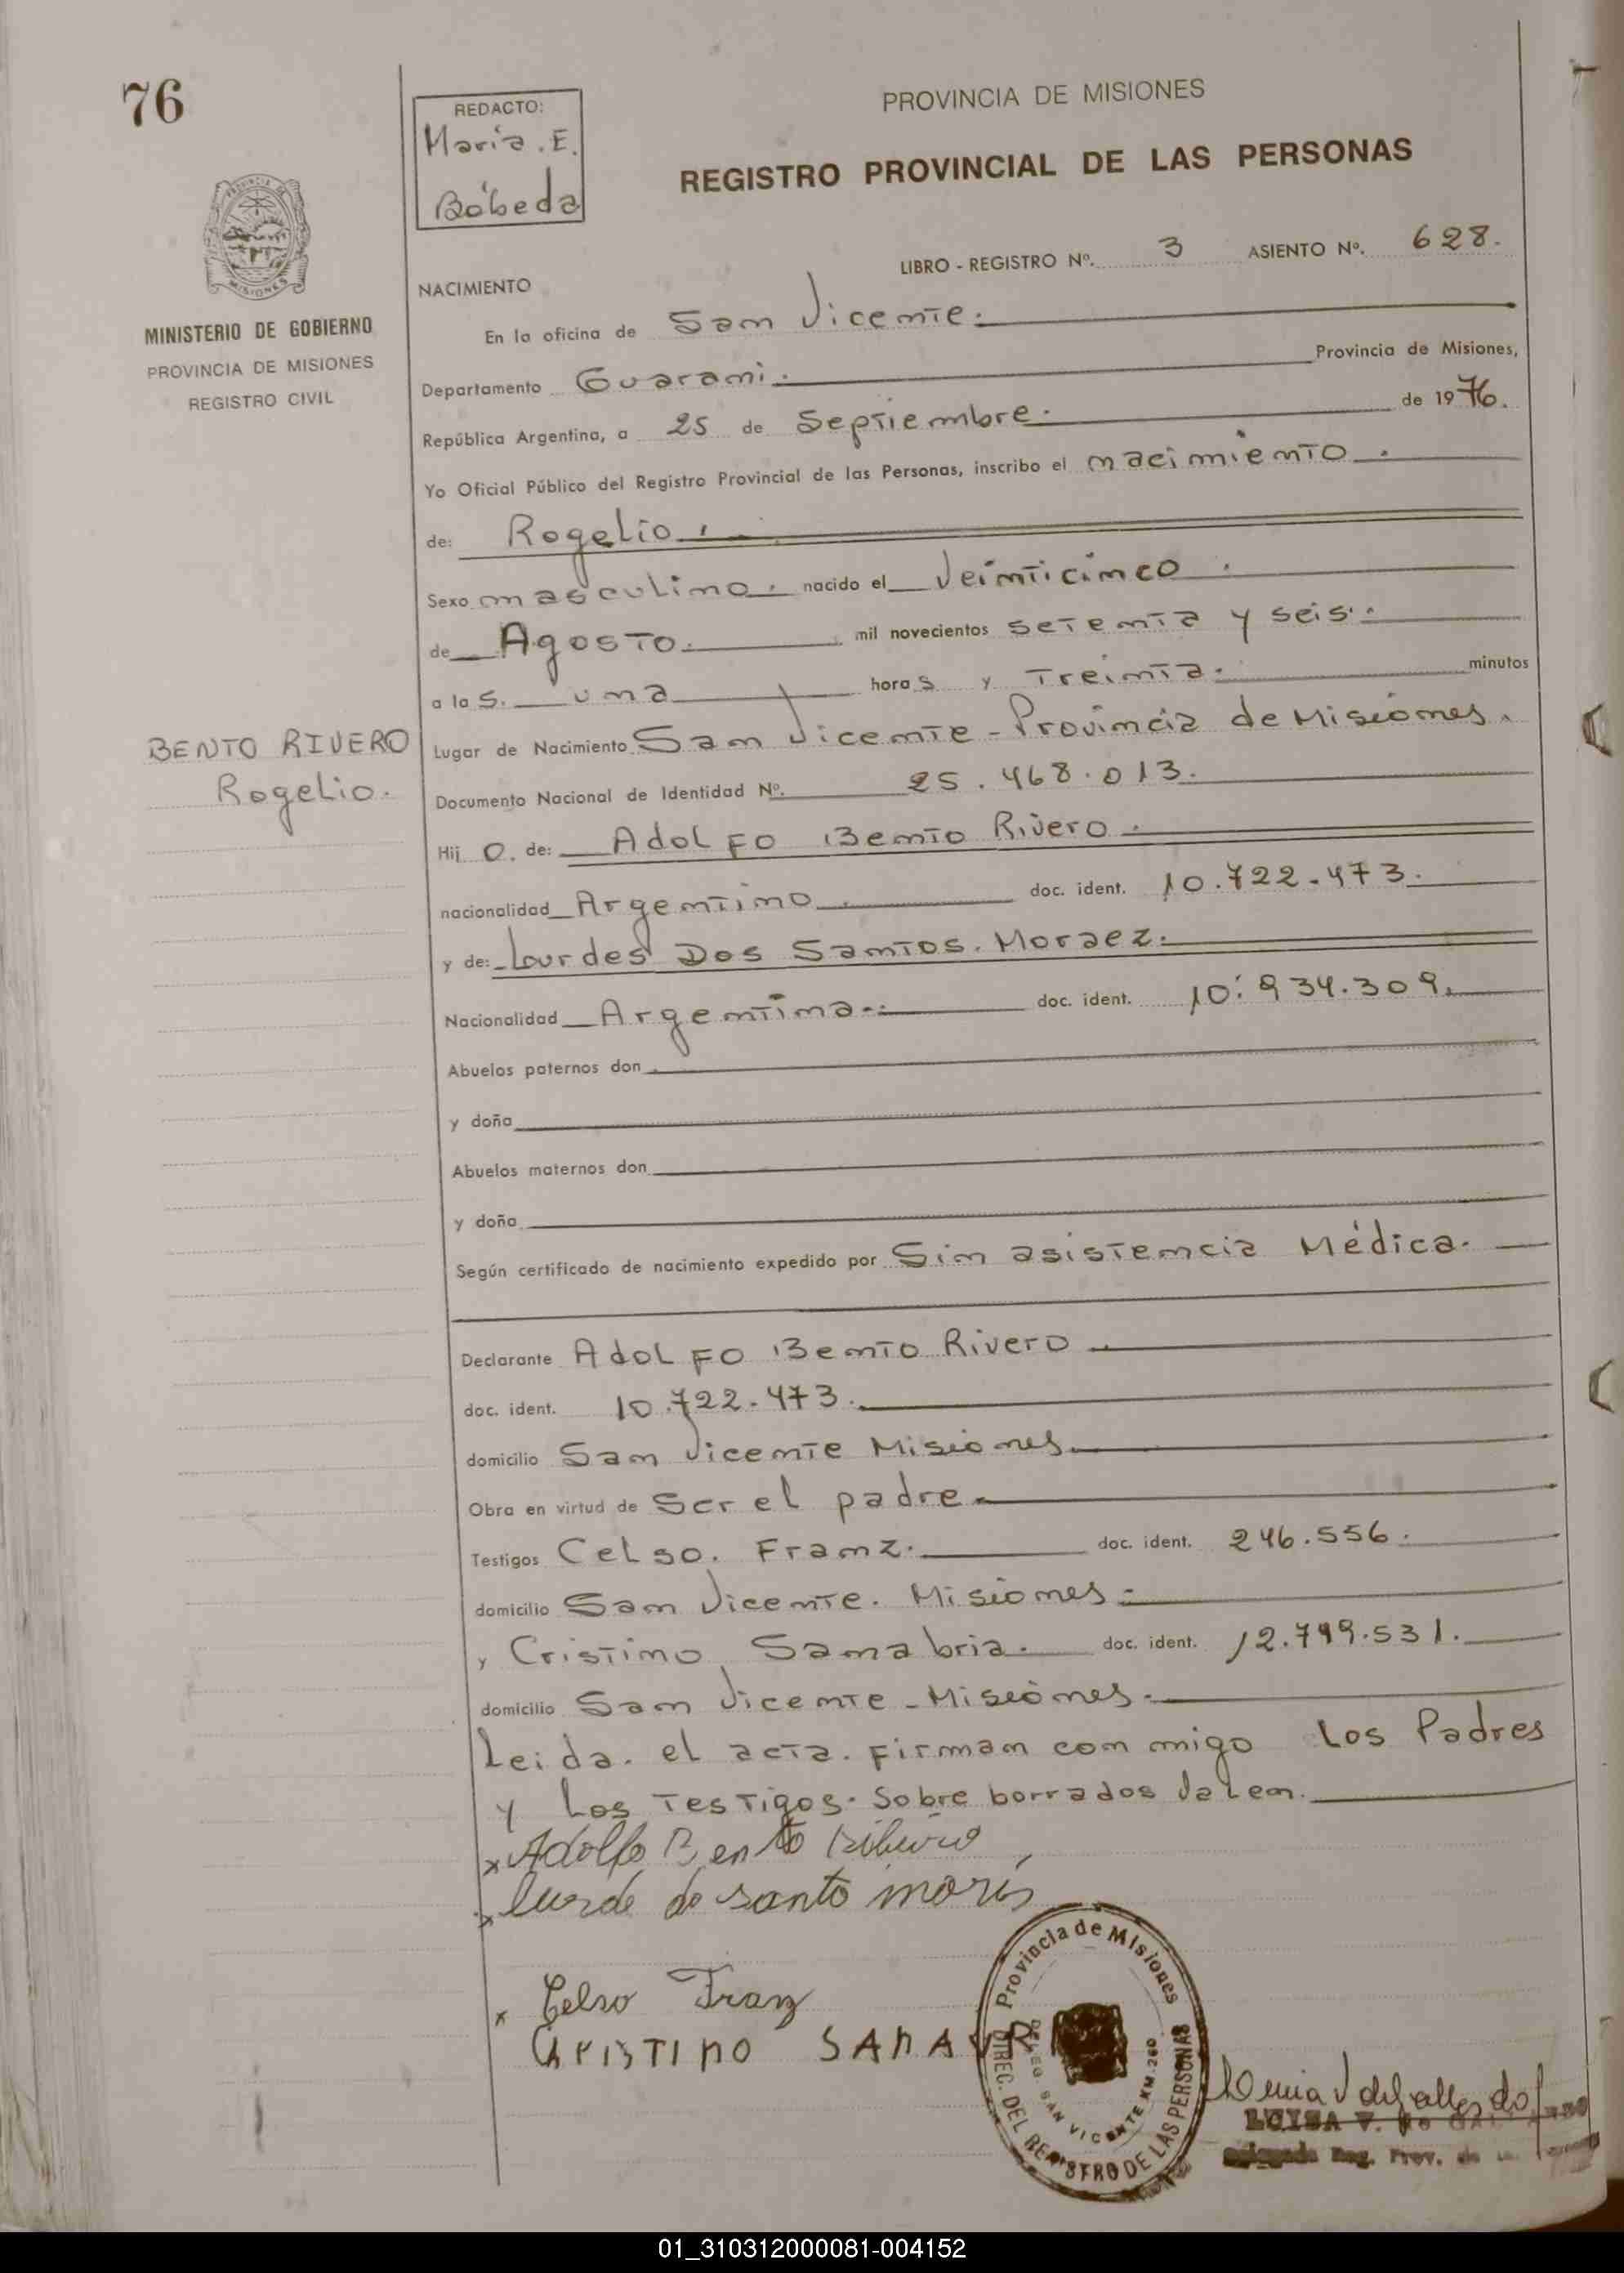 76
REDACTO:
María. E.
Bóbeda
PROVINCIA DE MISIONES
REGISTRO PROVINCIAL DE LAS PERSONAS
LIBRO - REGISTRO Nº. 3 ASIENTO Nº. 628.
MISIONES
MINISTERIO DE GOBIERNO
PROVINCIA DE MISIONES
REGISTRO CIVIL
NACIMIENTO
En la oficina de San Vicente.
Departamento Guarani. Provincia de Misiones,
República Argentina, a 25 de Septiembre. de 1976.
Yo Oficial Público del Registro Provincial de las Personas, inscribo el nacimiento.
de: Rogelio.
Sexo masculino. nacido el Veinticinco.
de Agosto. mil novecientos setenta y seis.
a las. una horas y Treinta. minutos
BENTO RIVERO
Rogelio.
Lugar de Nacimiento San Vicente - Provincia de Misiones.
Documento Nacional de Identidad Nº. 25.468.013.
Hijo. de: Adolfo Bento Rivero.
nacionalidad Argentino. doc. ident. 10.722.473.
y de: Lourdes Dos Santos. Moraez.
Nacionalidad Argentina. doc. ident. 10.934.309.
Abuelos paternos don
y doña
Abuelos maternos don
y doña
Según certificado de nacimiento expedido por Sin asistencia Médica.
Declarante Adolfo Bento Rivero
doc. ident. 10.722.473.
domicilio San Vicente Misiones
Obra en virtud de Ser el padre
Testigos Celso. Franz. doc. ident. 246.556.
domicilio San Vicente. Misiones
y Cristino Sanabria. doc. ident. 12.799.531.
domicilio San Vicente - Misiones.
Leida. el acta. firman con migo Los Padres
y Los Testigos. Sobre borrados Valen.
x Adolfo Bento Ribeiro
x lurde do santo moris
x Celso Franz
CRISTINO SANAVR
Provincia de Misiones
DIREC. DEL REGISTRO DE LAS PERSONAS
DELEG. SAN VICENTE KM. 260
LUISA V.
Reg. Prov. de
01_310312000081-004152